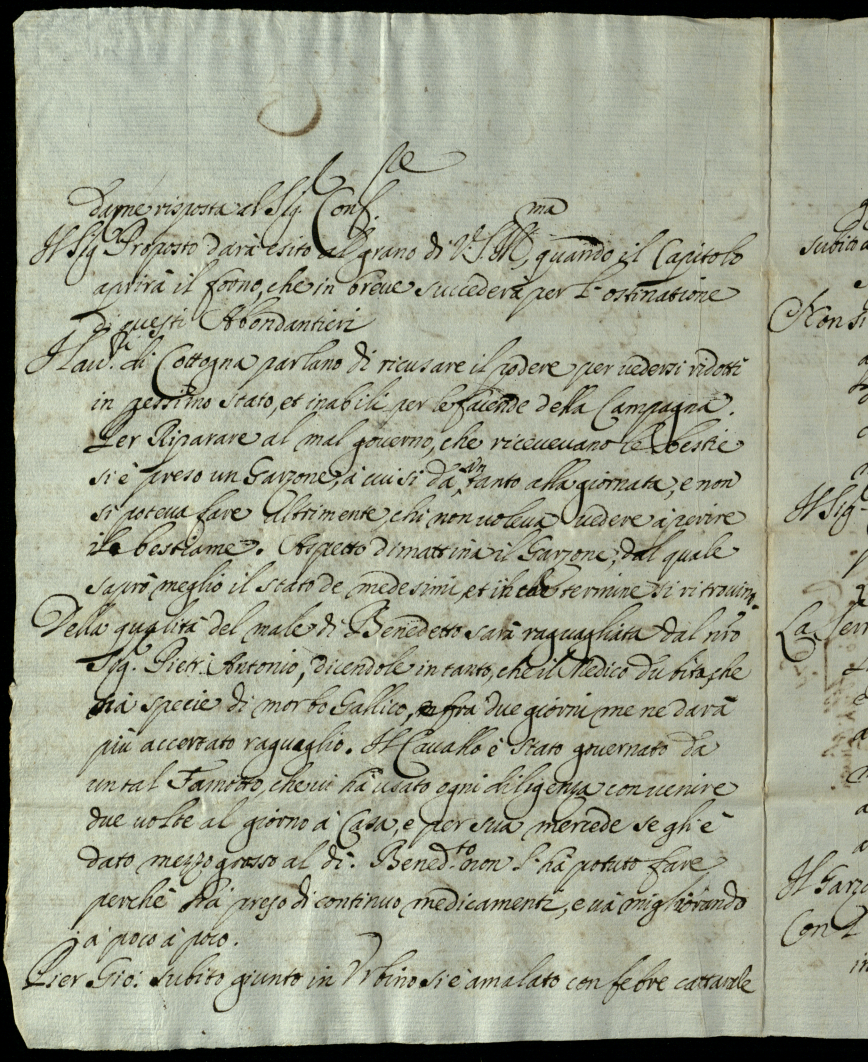 darne risposta al Sig. Conf.re
Il Sig. Proposto darà esito al grano di V.S. Ill.ma, quando il Capitolo
aprirà il forno, che in breve succederà per l'ostinatione
di questi Abondantieri
I lav.ri di Cottogna parlano di ricusare il podere per vedersi ridotti
in pessimo stato, et inabili per le faiende della Campagna.
Per Riparare al mal governo, che ricevevano le bestie
si è preso un Garzone, à cui si dà un tanto alla giornata, e non
si poteva fare altrimente, chi non voleva vedere à perire
il bestiame. Aspetto dimattina il Garzone, dal quale
saprò meglio il stato de medesimi, et in che termine si ritrovino.
Della qualità del male di Benedetto sarà raguagliata dal nrõ
Sig. Pietr' Antonio, dicendole in tanto, che il Medico dubita, che
sia specie di morbo Gallico, e frà due giorni me ne darà
più accertato raguaglio. Il Cavallo è stato governato da
un tal Famotto, che vi hà usato ogni diligenza con venire
due volte al giorno à Casa, e per sua mercede se gli è
dato mezzo grosso al dì. Bened.to non l'hà potuto fare,
perchè hà preso di continuo medicamenti, e và migliorando
à poco à poco.
Pier Gio: subito giunto in Urbino si è amalato con febre cattarale
subito
Non si
Il Sig.
La
Il Garzo
Con l
in